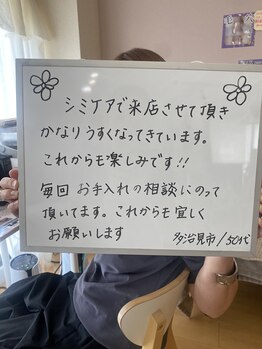 シミケアで来店させて頂き
かなりうすくなってきています。
これからも楽しみです!!
毎回 お手入れの相談にのって
頂いてます。これからも宜しく
お願いします
多治見市/50代